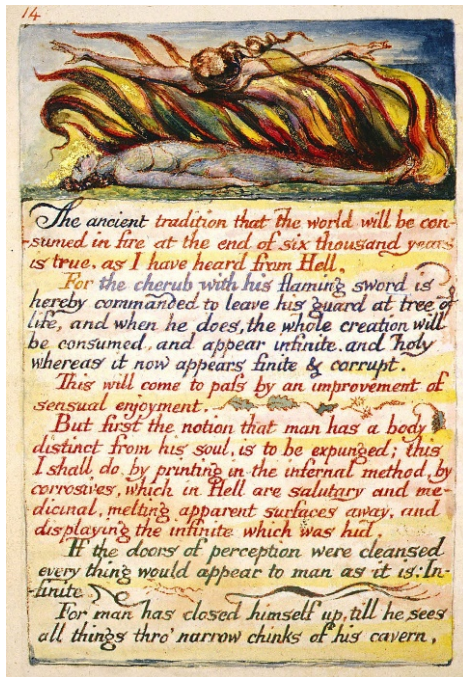 14
The ancient tradition that the world will be con-
-sumed in fire at the end of six thousand years
is true. as I have heard from Hell.
For the cherub with his flaming sword is
hereby commanded to leave his guard at tree of
life, and when he does, the whole creation will
be consumed, and appear infinite. and holy
whereas it now appears finite & corrupt.
This will come to paſs by an improvement of
sensual enjoyment.
But first the notion that man has a body
distinct from his soul, is to be expunged; this
I shall do, by printing in the infernal method, by
corrosives, which in Hell are salutary and me-
dicinal, melting apparent surfaces away, and
displaying the infinite which was hid.
If the doors of perception were cleansed
every thing would appear to man as it is: In-
-finite.
For man has closed himself up, till he sees
all things thro' narrow chinks of his cavern,